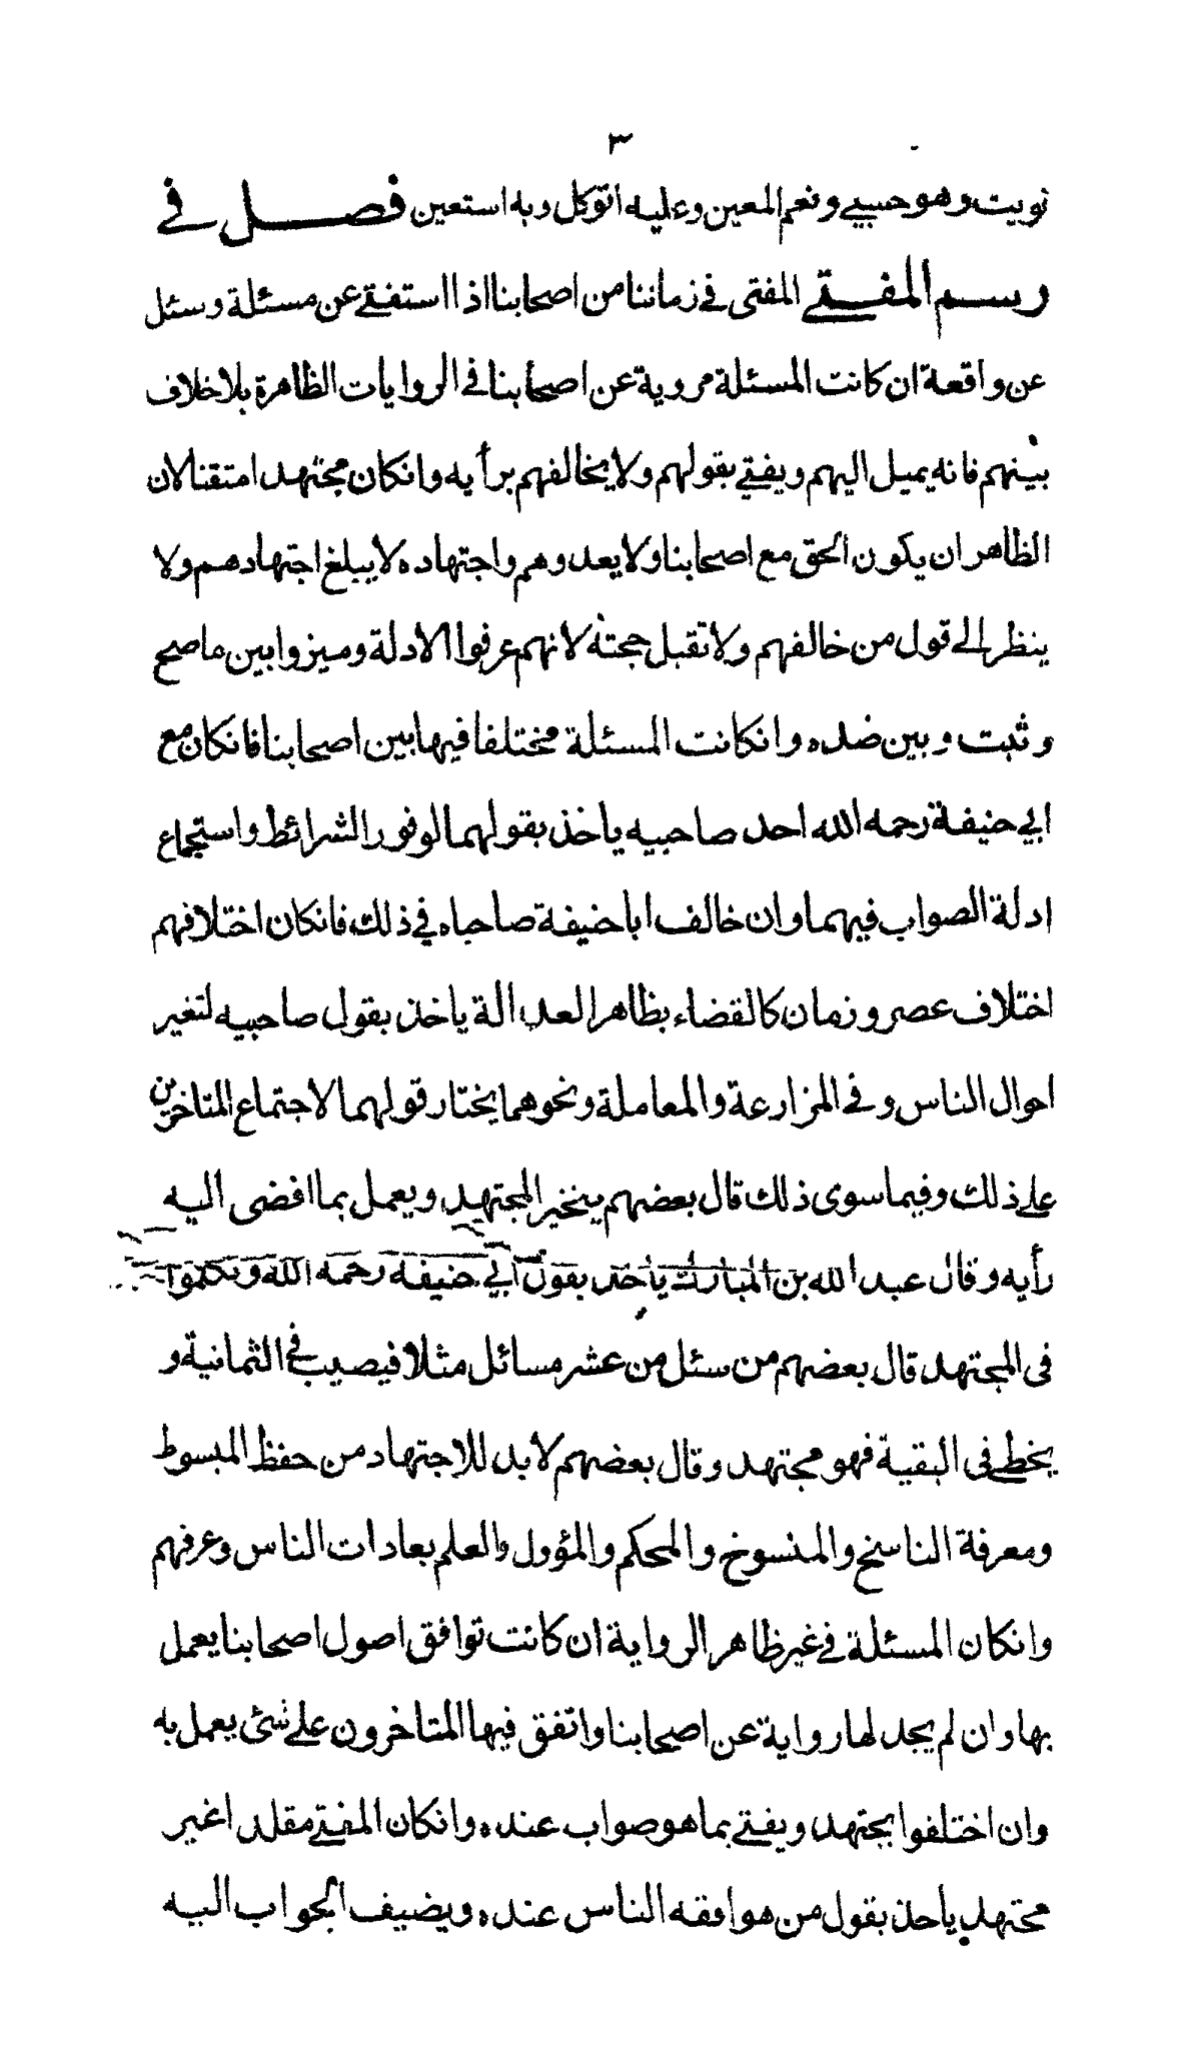 ٣
نويت وهو حسبي ونعم المعين وعليه اتوكل وبه استعين فصل في
رسم المفتي المفتى في زماننا من اصحابنا اذا استفتي عن مسئلة وسئل
عن واقعة ان كانت المسئلة مروية عن اصحابنا في الروايات الظاهرة بلا خلاف
بينهم فانه يميل اليهم ويفتي بقولهم ولا يخالفهم برأيه وانكان مجتهدا متقنا لان
الظاهر ان يكون الحق مع اصحابنا ولا يعدوهم واجتهاده لا يبلغ اجتهادهم ولا
ينظر الى قول من خالفهم ولا تقبل حجته لانهم عرفوا الادلة وميزوا بين ما صح
وثبت وبين ضده وانكانت المسئلة مختلفا فيها بين اصحابنا فانكان مع
ابي حنيفة رحمه الله احد صاحبيه ياخذ بقولهما لوفور الشرائط واستجماع
ادلة الصواب فيهما وان خالف ابا حنيفة صاحباه في ذلك فانكان اختلافهم
اختلاف عصر وزمان كالقضاء بظاهر العدالة ياخذ بقول صاحبيه لتغير
احوال الناس وفي المزارعة والمعاملة ونحوهما يختار قولهما لاجتماع المتاخرين
على ذلك وفيما سوى ذلك قال بعضهم يتخير المجتهد ويعمل بما افضى اليه
رأيه وقال عبد الله بن المبارك ياخذ بقول ابي حنيفة رحمه الله وتكلموا
فى المجتهد قال بعضهم من سئل من عشر مسائل مثلا فيصيب في الثمانية و
يخطي فى البقية فهو مجتهد وقال بعضهم لا بد للاجتهاد من حفظ المبسوط
ومعرفة الناسخ والمنسوخ والمحكم والمؤول والعلم بعادات الناس وعرفهم
وانكان المسئلة في غير ظاهر الرواية ان كانت توافق اصول اصحابنا يعمل
بها وان لم يجد لها رواية عن اصحابنا واتفق فيها المتاخرون على شئ يعمل به
وان اختلفوا يجتهد ويفتي بما هو صواب عنده وانكان المفتي مقلدا غير
مجتهد يأخذ بقول من هو افقه الناس عنده ويضيف الجواب اليه